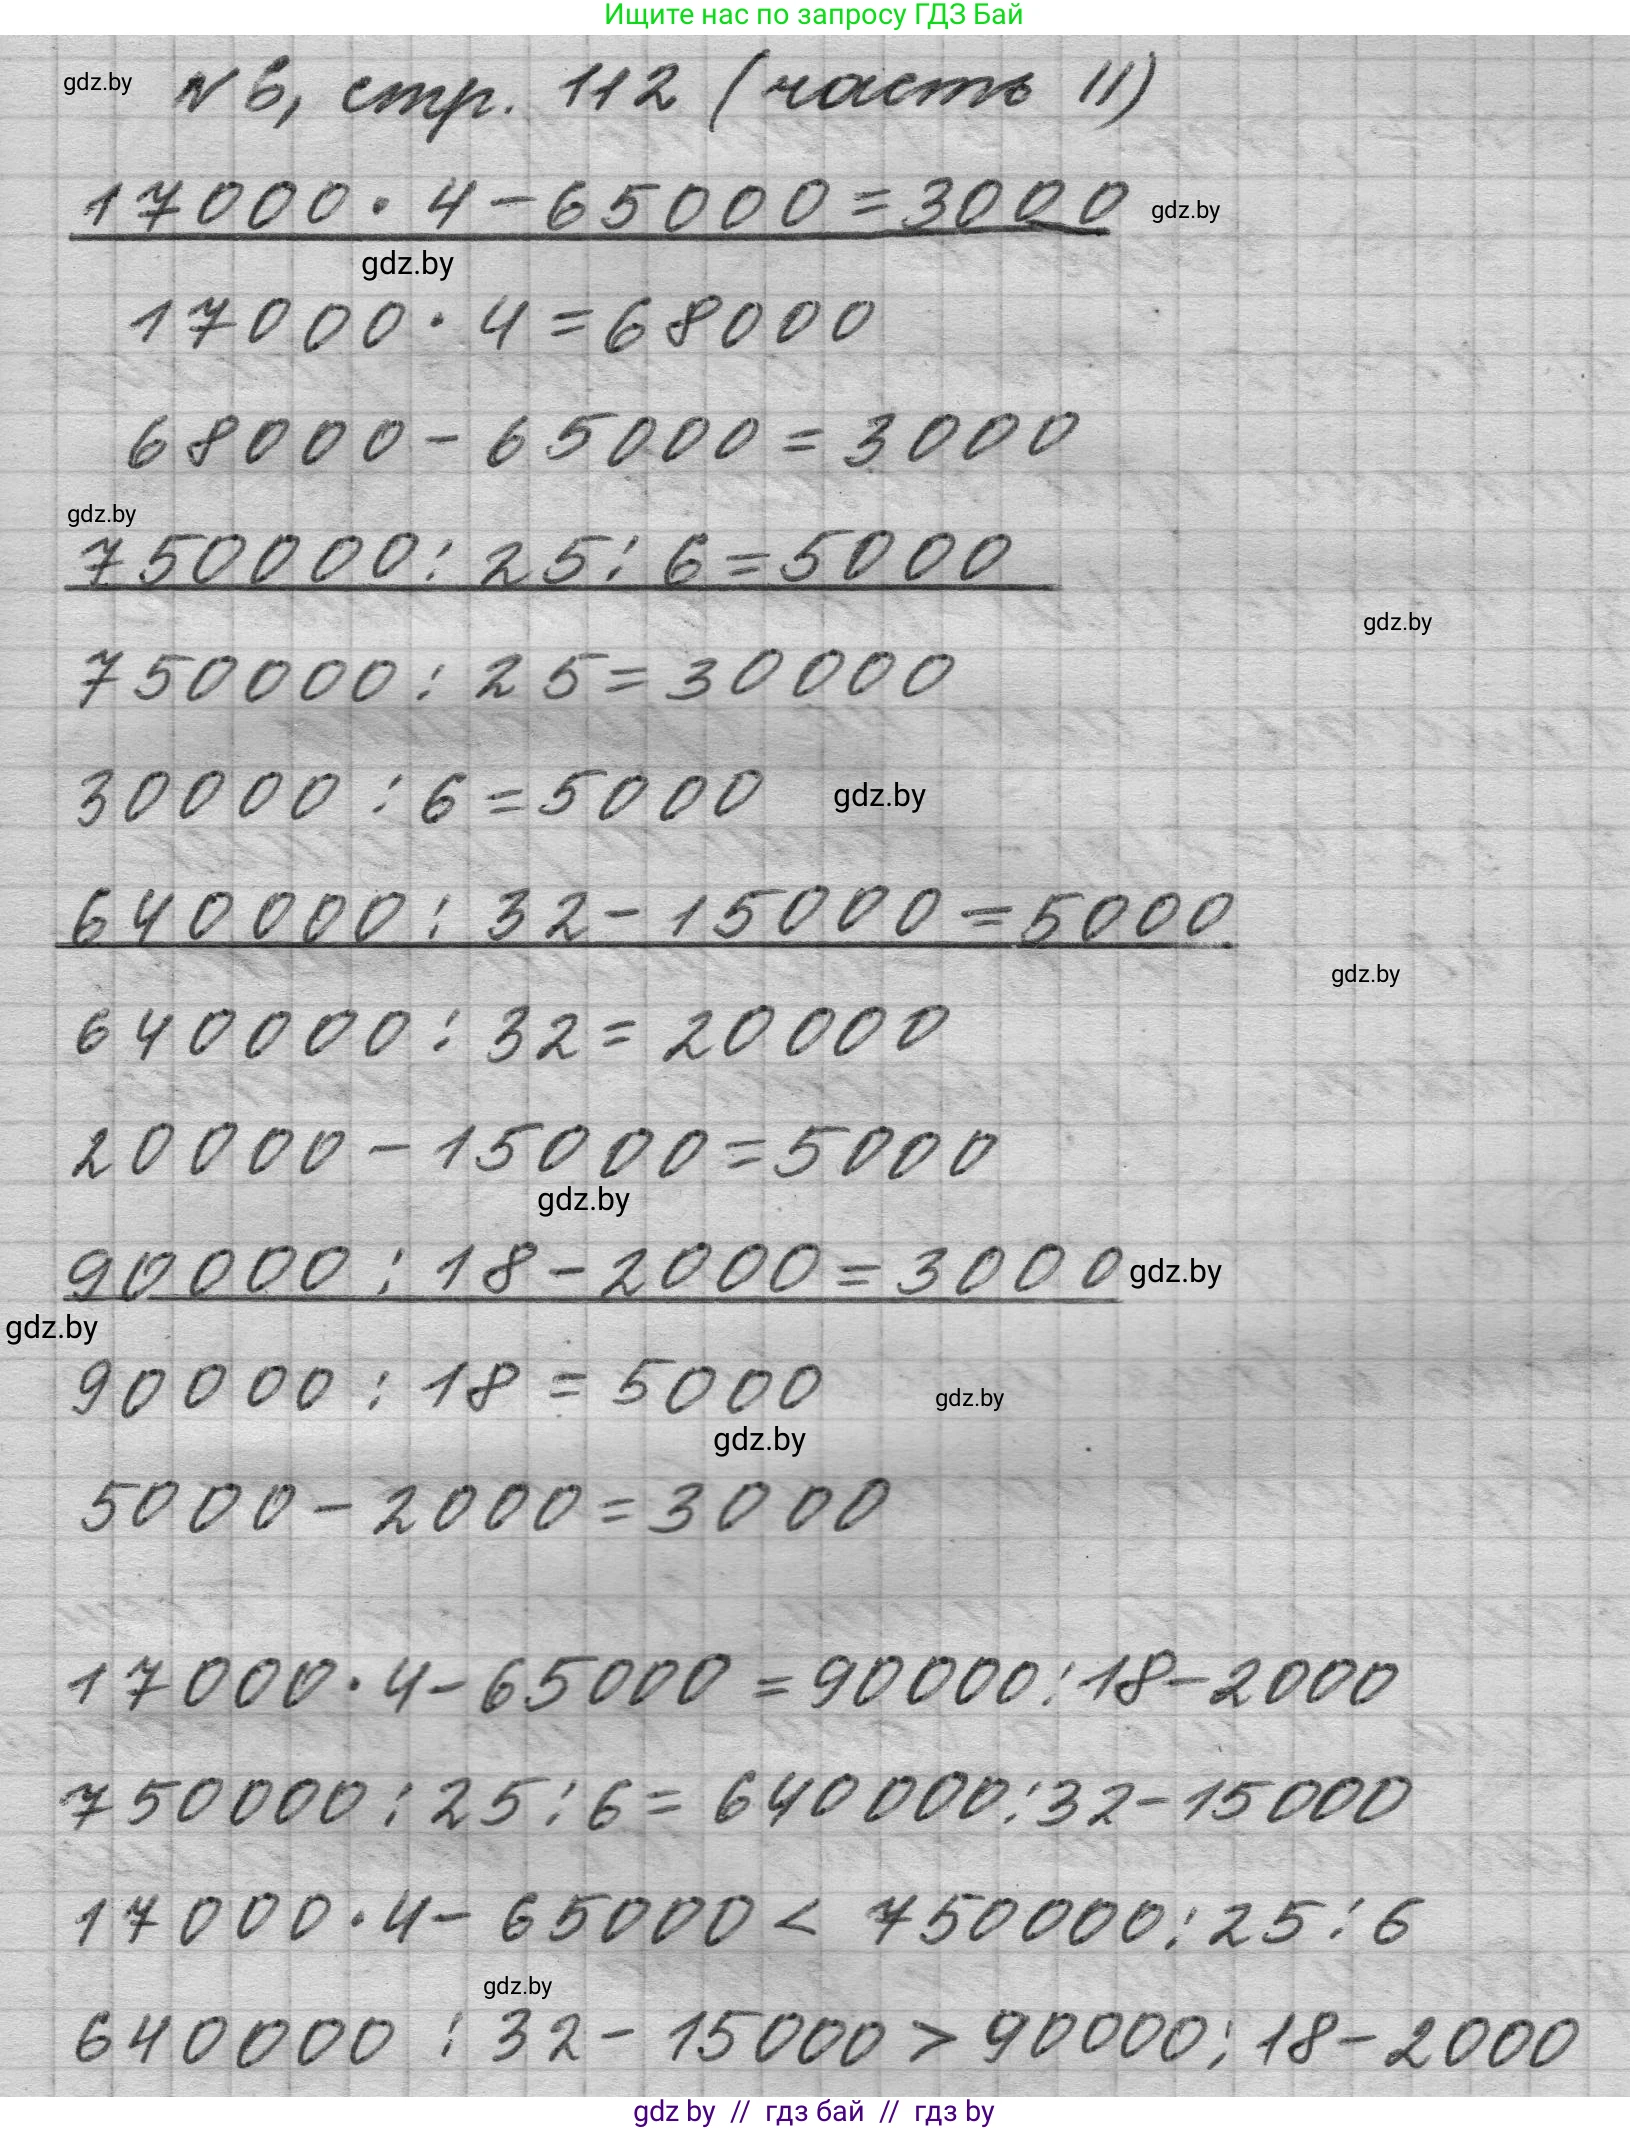 Ищите нас по запросу ГДЗ Бай
gdz.by
№6, стр. 112 (часть II)
17000 · 4 - 65000 = 3000
gdz.by
gdz.by
17000 · 4 = 68000
68000 - 65000 = 3000
gdz.by
750000 : 25 : 6 = 5000
gdz.by
750000 : 25 = 30000
30000 : 6 = 5000
gdz.by
640000 : 32 - 15000 = 5000
gdz.by
640000 : 32 = 20000
20000 - 15000 = 5000
gdz.by
90000 : 18 - 2000 = 3000
gdz.by
gdz.by
90000 : 18 = 5000
gdz.by
gdz.by
5000 - 2000 = 3000
17000 · 4 - 65000 = 90000 : 18 - 2000
750000 : 25 : 6 = 640000 : 32 - 15000
17000 · 4 - 65000 < 750000 : 25 : 6
gdz.by
640000 : 32 - 15000 > 90000 : 18 - 2000
gdz by // гдз бай // гдз by